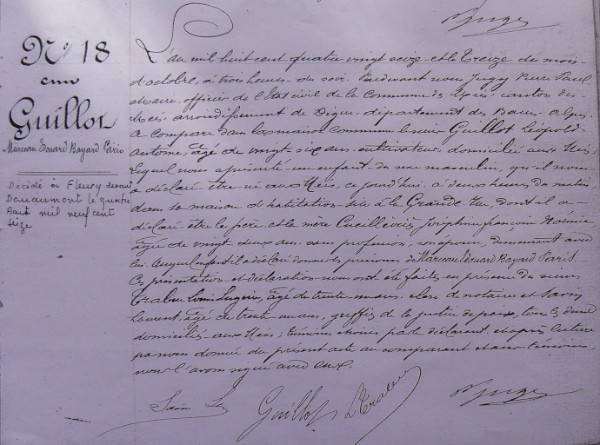 Nº 18
Guillot
Marceau Edouard Bayard Paris
Décédé à Fleury devant
Douaumont le quatre
Août mil neuf cent
seize
L'an mil huit cent quatre vingt seize et le treize du mois
d'octobre, à trois heures du soir. Pardevant nous Jugy Pierre Paul
maire, officier de l'Etat civil de la Commune des Mées, canton des
Mées arrondissement de Digne, département des Basses alpes,
a comparu dans la maison commune le sieur Guillot Léopold
Antoine, âgé de vingt six ans, cultivateur, domicilié aux Mées
lequel nous a présenté un enfant du sexe masculin, qu'il nous
a déclaré être né aux Mées, ce jourd'hui à deux heures du matin,
dans sa maison d'habitation sise à la Grande Rue, dont il a
déclaré être le père et la mère Joséphine
âgée de vingt deux ans, sans profession, son épouse, demeurant avec
lui. Auquel enfant il a déclaré donner les prénoms de Marceau Edouard Bayard Paris.
Ces présentation et déclaration nous ont été faites en présence des sieurs
Trabuc Louis, âgé de trente ans, clerc de notaire et Savin
Laurent, âgé de trente un ans, greffier de la justice de paix, tous les deux
domiciliés aux Mées; témoins choisis par le déclarant, et après lecture
par nous donnée du présent acte au comparant et aux témoins
nous l'avons signé avec eux.
Guillot L Trabuc